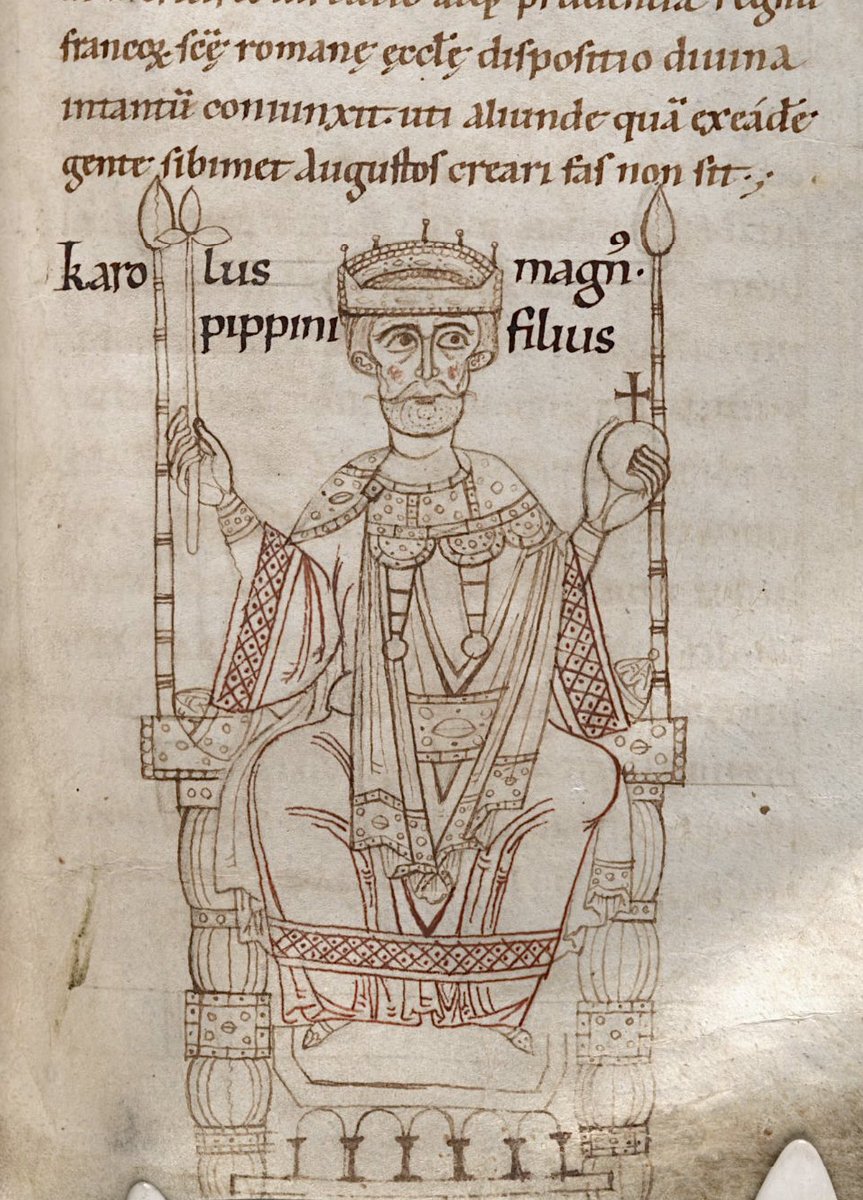 francoꝝ scę̄ romanę ęccłę dispositio diuina
intantū coniunxit. uti aliunde quā exeádē
gente sibimet augustos creari fas non sit.
karolus magn̉.
pippini filius